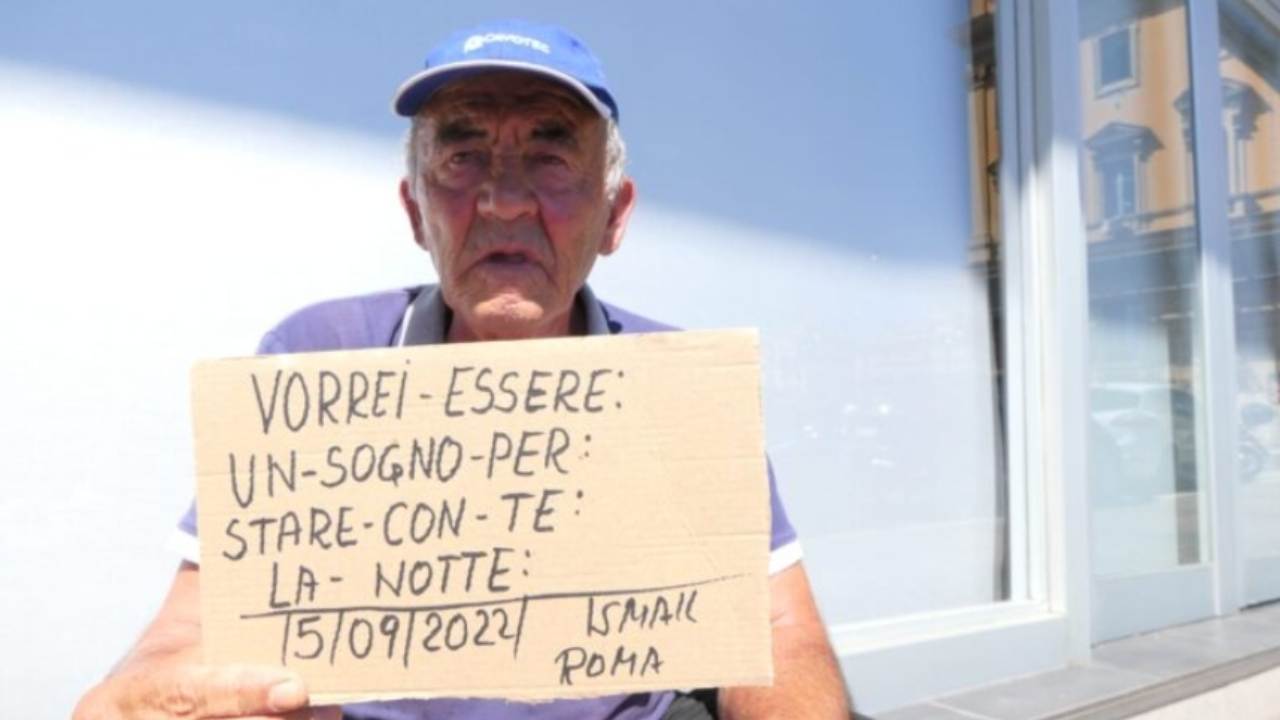 VORREI-ESSERE:
UN-SOGNO-PER:
STARE-CON-TE:
LA- NOTTE:
15/09/2022/ ISMAIL
ROMA